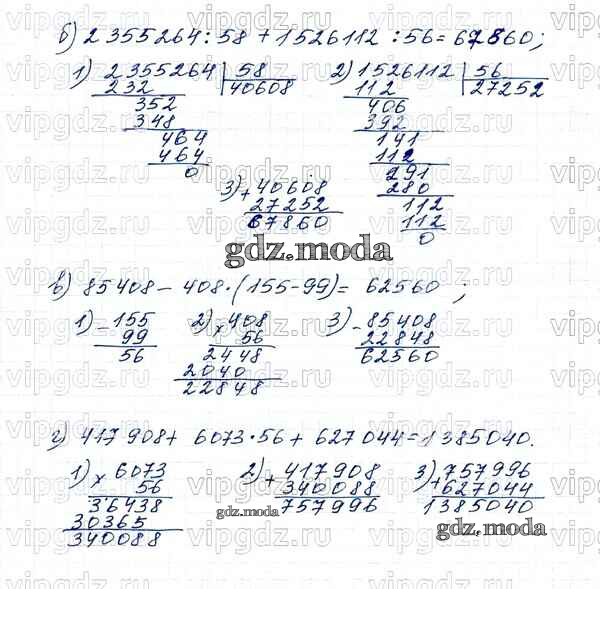 б) 2355264 : 58 + 1526112 : 56 = 67860;
1) 2355264 | 58
232 40608
352
348
464
464
0
2) 1526112 | 56
112 27252
406
392
141
112
291
280
112
112
0
3) + 40608
27252
67860
gdz.moda
в) 85408 - 408 · (155 - 99) = 62560 ;
1) - 155
99
56
2) x 408
56
2448
2040
22848
3) - 85408
22848
62560
г) 417908 + 6073 · 56 + 627044 = 1385040.
1) x 6073
56
36438
30365
340088
2) + 417908
340088
757996
gdz.moda
3) + 757996
627044
1385040
gdz.moda
vipgdz.ru